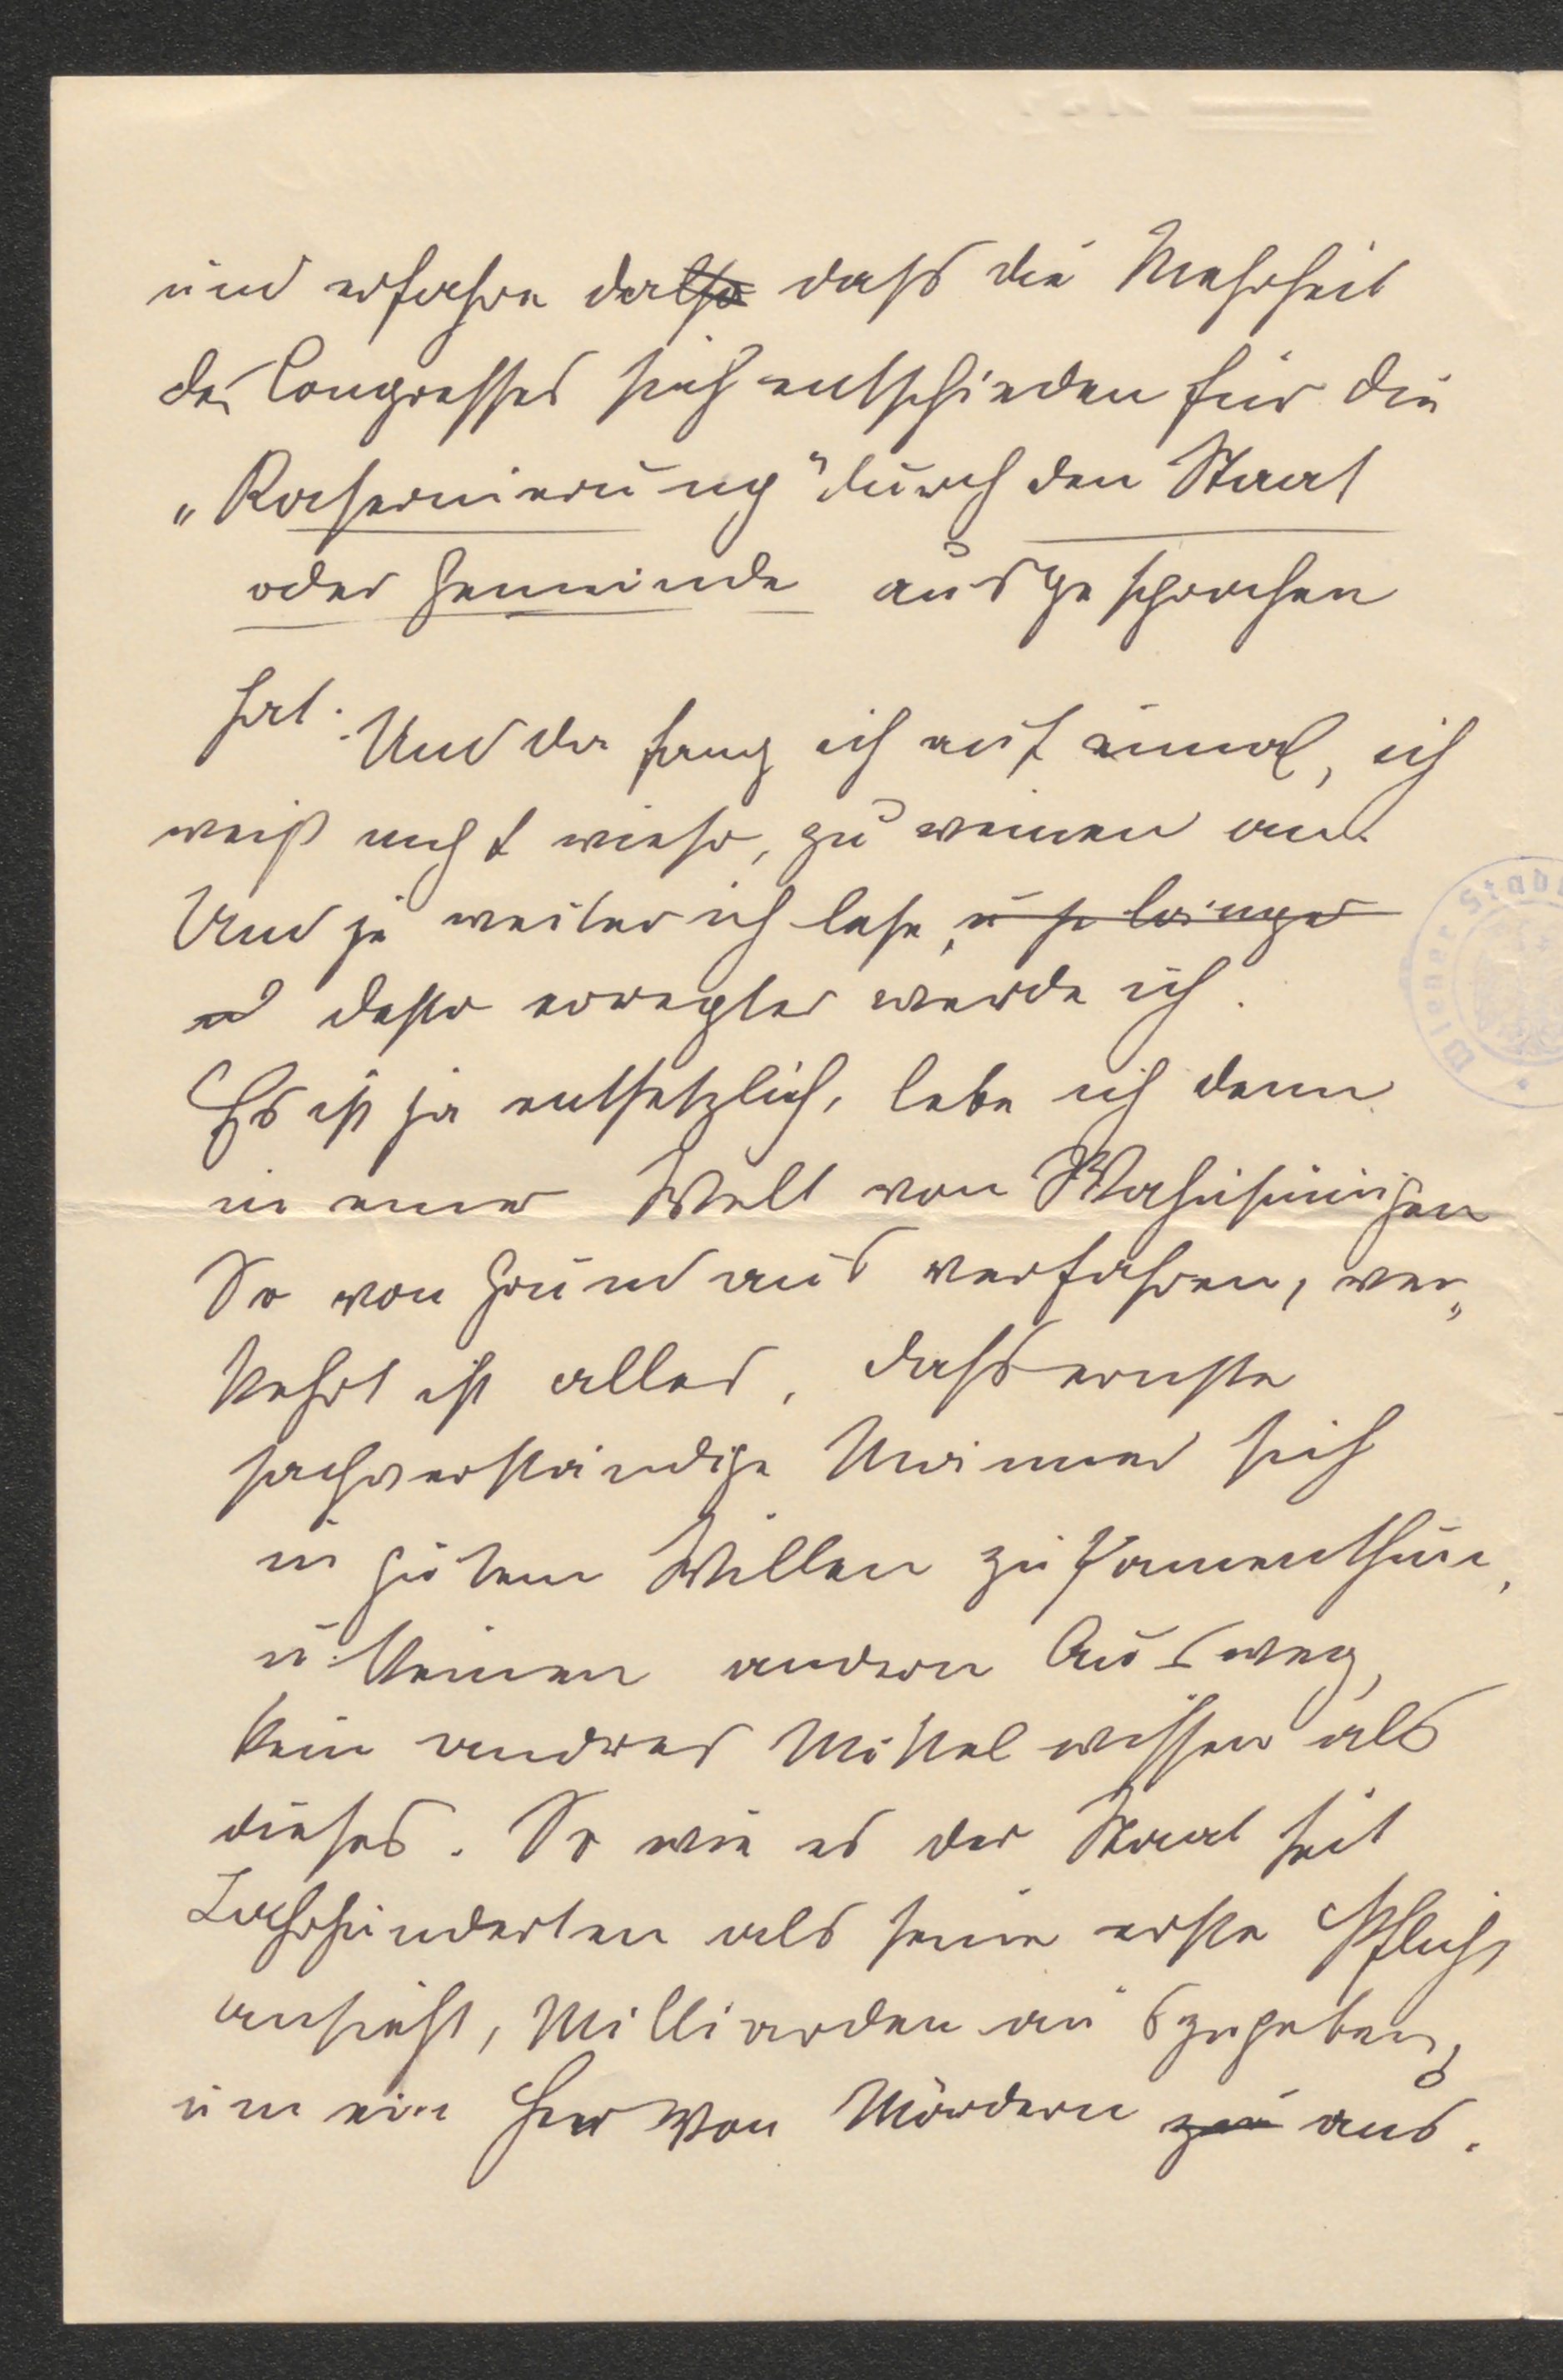 und erfahre da daß die Mehrheit
des Congresses sich entschieden für die
„Kasernierung" durch den Staat
oder Gemeinde ausgesprochen
hat. Und da fang ich auf einmal, ich
weiß nicht wieso, zu weinen an.
Und je weiter ich lese, u je länger
desto erregter werde ich.
Es ist ja entsetzlich, lebe ich denn
in einer Welt von Wahnsinnigen
So von Grund aus verfahren, ver„
kehrt ist alles, daß ernste
sachverständige Männer sich
in gutem Willen zusamenthun,
u. keinen andern Ausweg,
kein andres Mittel wissen als
dieses. So wie es der Staat seit
Jahrhunderten als seine erste Pflicht
ansieht, Milliarden auszugeben,
um ein Heer von Mördern zu aus.
Wiener Stadt